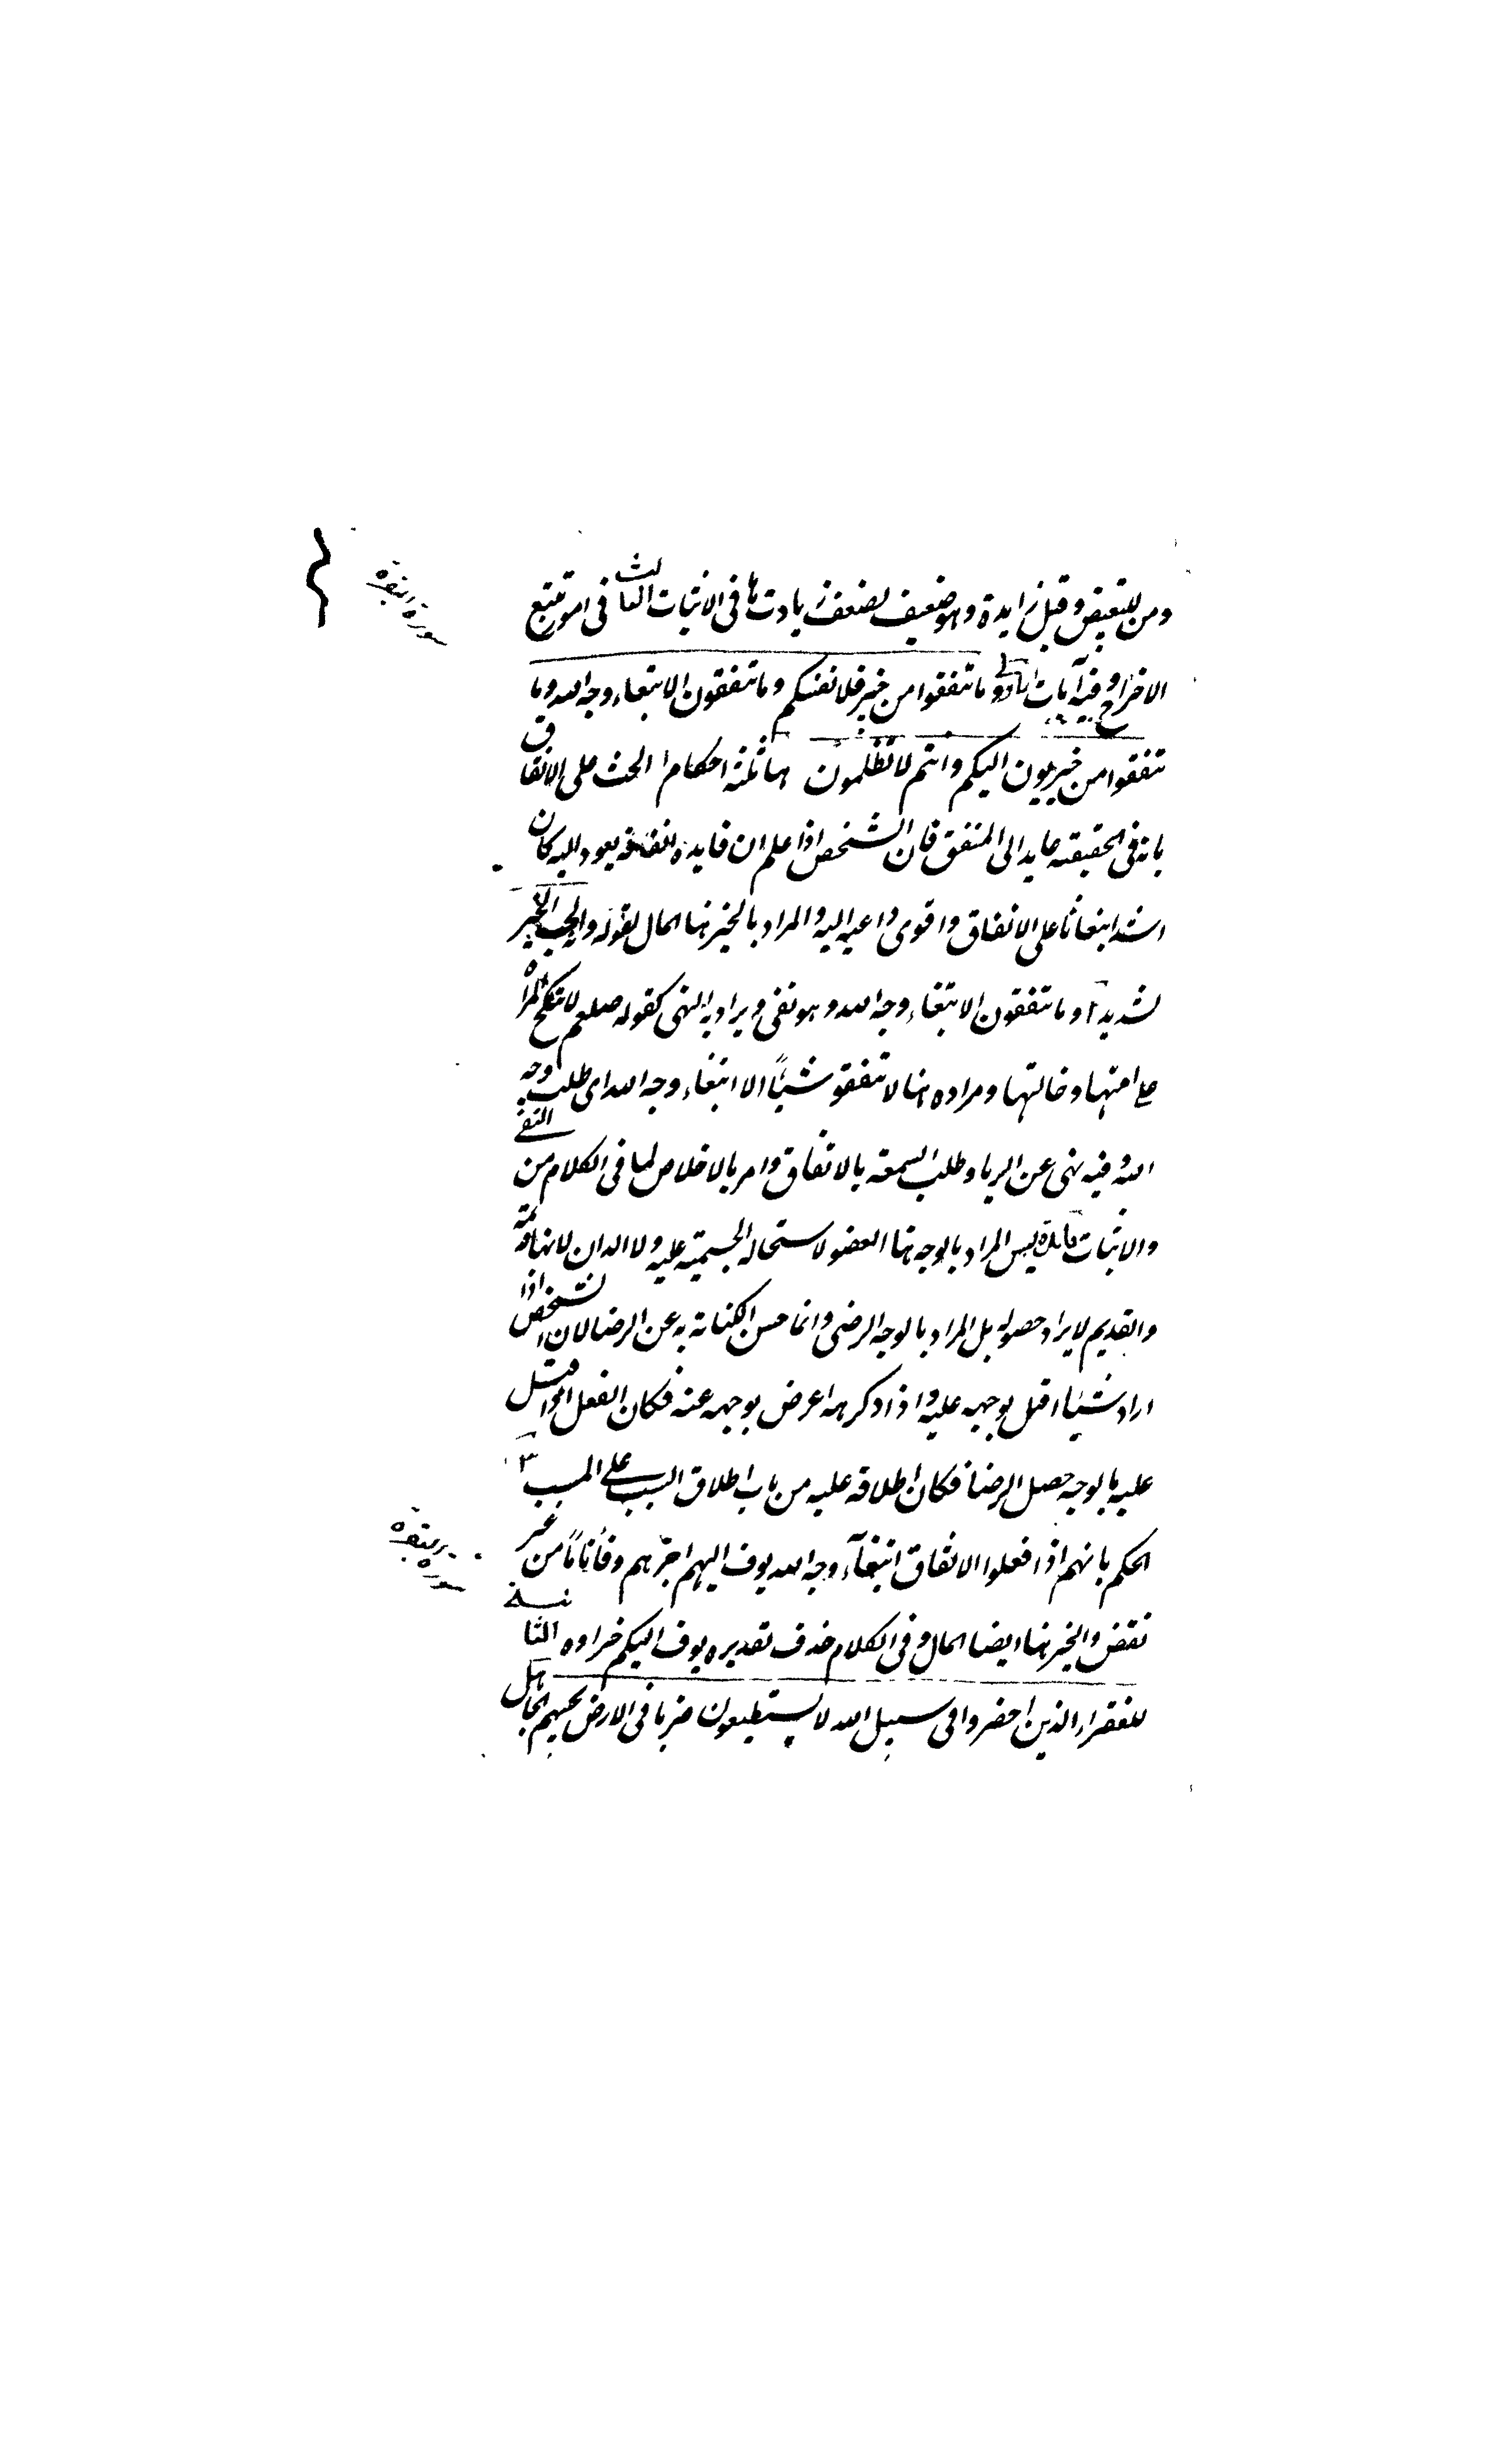 ومن للتبعيض وقيل زايدة وهو ضعيف لضعف زيادتها فى الاثبات الثالث فى امور تتبع
الاخراج وفيه آيات الاولى وما تنفقوا من خير فلانفسكم وما تنفقون الا ابتغاء وجه الله وما
تنفقوا من خير يوف اليكم وانتم لا تظلمون هنا ثلثة احكام ا الحث على الانفاق
بانه فى الحقيقة عايد الى المنفق فان الشخص اذا علم ان فايدة انفاقه يعود اليه كان
اشد انبعاثا على الانفاق واقوى داعية اليه والمراد بالخير هنا المال لقوله وانه لحب الخير
لشديد ٢ وما تنفقون الا ابتغاء وجه الله وهو نفى ويراد به النهى كقوله صلعم لا تنكح المرأة
على عمتها وخالتها ومراده هنا لا تنفقو شيئاً الا ابتغاء وجه الله اى طلب وجه
الله وفيه نهى عن الريا وطلب السمعة بالانفاق وامر بالاخلاص لما فى الكلام من النفى
والاثبات فايدة ليس المراد بالوجه هنا العضو لاستحالة الجسمية عليه ولا الذات لانها قديمة
والقديم لا يراد حصوله بل المراد بالوجه الرضى وانما حسن الكناية به عن الرضا لان الشخص اذا
اراد شيئا اقبل بوجهه عليه واذا كرهه اعرض بوجهه عنه فكان الفعل اذا اقبل
عليه بالوجه حصل الرضا فكان اطلاقه عليه من باب اطلاق السبب على المسبب ٣
الحكم بانهم اذا فعلوا الانفاق ابتغآء وجه الله يوف اليهم اجرهم وفاً تاماً من غير
نقض والخير هنا ايضا المال وفى الكلام حذف تقديره يوف اليكم جزاوه الثانية
للفقراء الذين احصروا فى سبيل الله لا يستطيعون ضربا فى الارض يحسبهم الجاهل
سورة البقره
سورة البقره